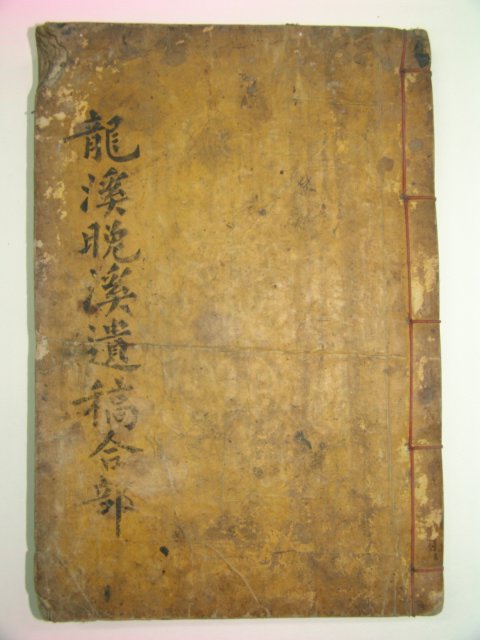 龍溪晩溪遺稿合部